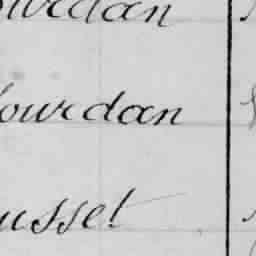 ourdan
ourdan
usset